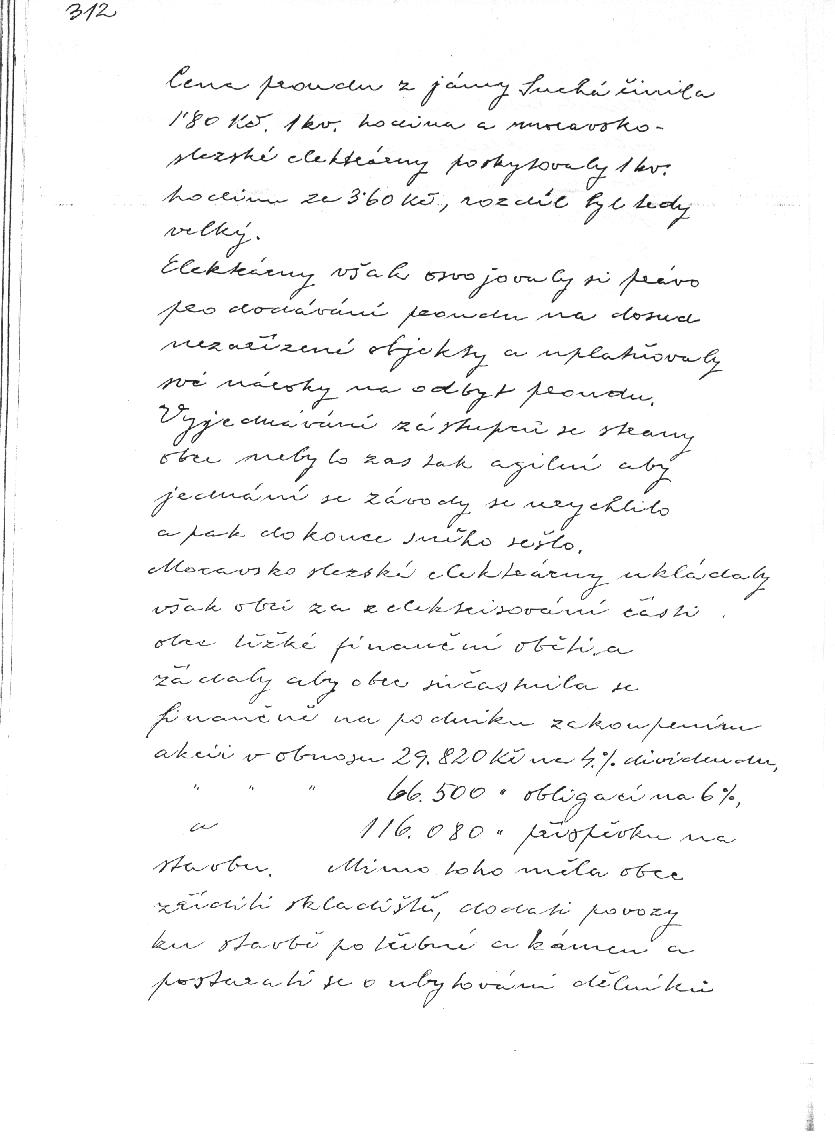 312
Cena proudu z jámy Suchá činila
1'80 Kč. 1 kv. hodina a moravsko-
slezské elektrárny poskytovaly 1 kv.
hodinu za 3'60 Kč, rozdíl byl tedy
velký.
Elektrárny však osvojovaly si právo
pro dodávání proudu na dosud
nezařízené objekty a uplatňovaly
své nároky na odbyt proudu.
Vyjednávání zástupců se strany
obce nebylo zas tak agilní aby
jednání se závody se urychlilo
a pak dokonce s něho sešlo.
Moravsko slezské elektrárny ukládaly
však obci za zelektrisování části
obce těžké finanční oběti, a
žádaly aby obec súčasnila se
finančně na podniku zakoupením
akcii v obnosu 29.820 Kč na 4.% dividendu,
" " " 66.500 " obligací na 6%,
a 116.080 " příspěvku na
stavbu. Mimo toho měla obec
zříditi skladiště, dodati povozy
ku stavbě potřebné a kámen a
postarati se o ubytování dělníků